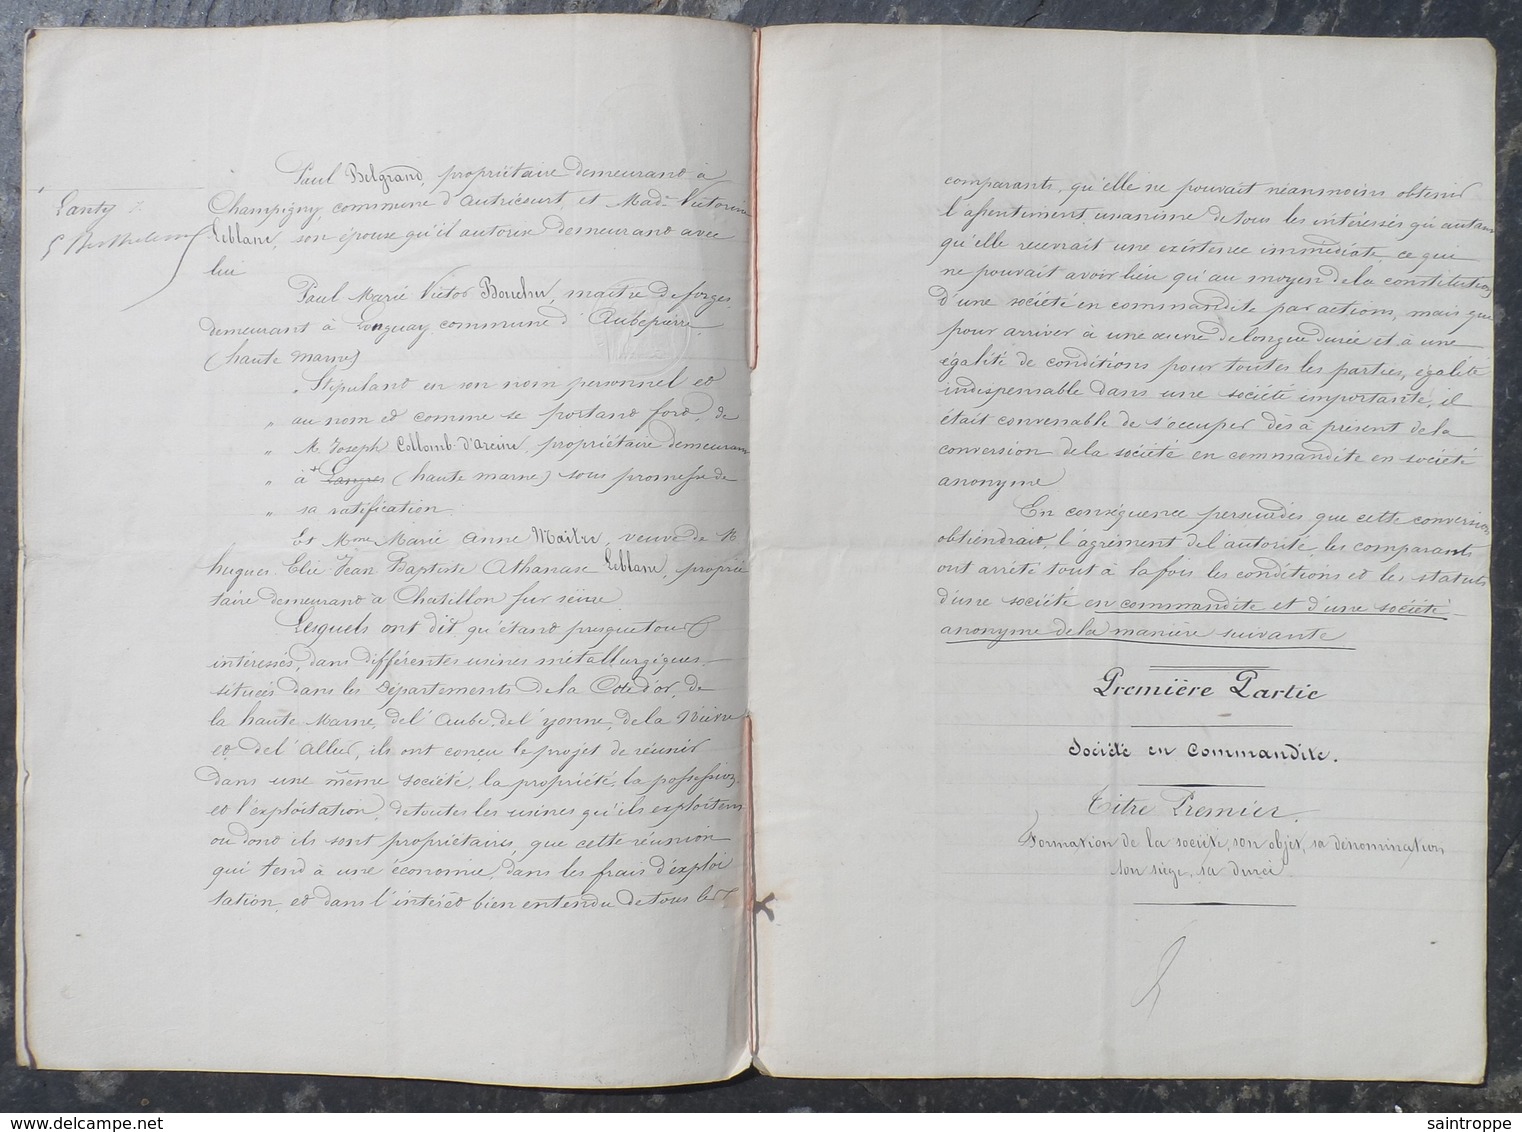 Paul Belgrand, propriétaire demeurant à
Champigny, commune d'Autricourt et Made Victorine
Leblanc, son épouse qu'il autorise demeurant avec
lui
Lanty
Paul Marie Victor Boucher, maître de forges
demeurant à Longuay commune d'Aubepierre
(haute marne)
" Stipulant en son nom personnel et
" au nom et comme se portant fort, de
" M. Joseph Collomb-d'Arcine, propriétaire demeurant
" à + Langres (haute marne) sous promesse de
" sa ratification
Et Mme Marie Anne Maitre, veuve de M
hugues Elie Jean Baptiste Athanase Leblanc, proprié
taire demeurant à Chatillon sur seine
Lesquels ont dit qu'étant presque tous
intéressés, dans différentes usines métallurgiques
situées dans les Départements de la Cote d'or, de
la haute Marne, de l'Aube, de l'yonne, de la Nièvre
et de l'Allier, ils ont conçu le projet de réunir
dans une même société, la propriété, la possession
et l'exploitation, de toutes les usines qu'ils exploitent
ou dont ils sont propriétaires, que cette réunion
qui tend à une économie, dans les frais d'exploi
tation, et dans l'intérêt bien entendu de tous les
comparants, qu'elle ne pouvait néanmoins obtenir
l'assentiment unanime de tous les intéressés qu'autant
qu'elle recevrait une existence immédiate, ce qui
ne pouvait avoir lieu qu'au moyen de la constitution
d'une société en commandite par actions, mais que
pour arriver à une œuvre de longue durée et à une
égalité de conditions pour toutes les parties, égalité
indispensable dans une société importante, il
était convenable de s'occuper dès à présent de la
conversion de la société en commandite en société
anonyme
En conséquence persuadés que cette conversion
obtiendrait, l'agrément de l'autorité, les comparants
ont arrêté tout à la fois les conditions et les statuts
d'une société en commandite et d'une société
anonyme de la manière suivante
Première Partie
Société en Commandite.
Titre Premier.
Formation de la société, son objet, sa dénomination
son siège, sa durée
saintroppe